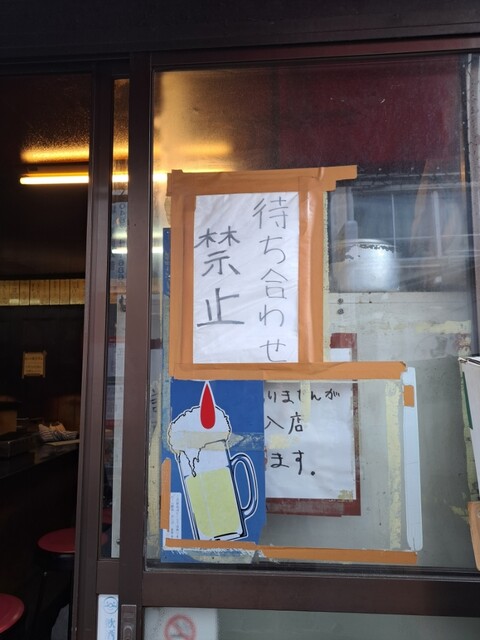 待ち合わせ
禁止
りませんが
入店
ます。